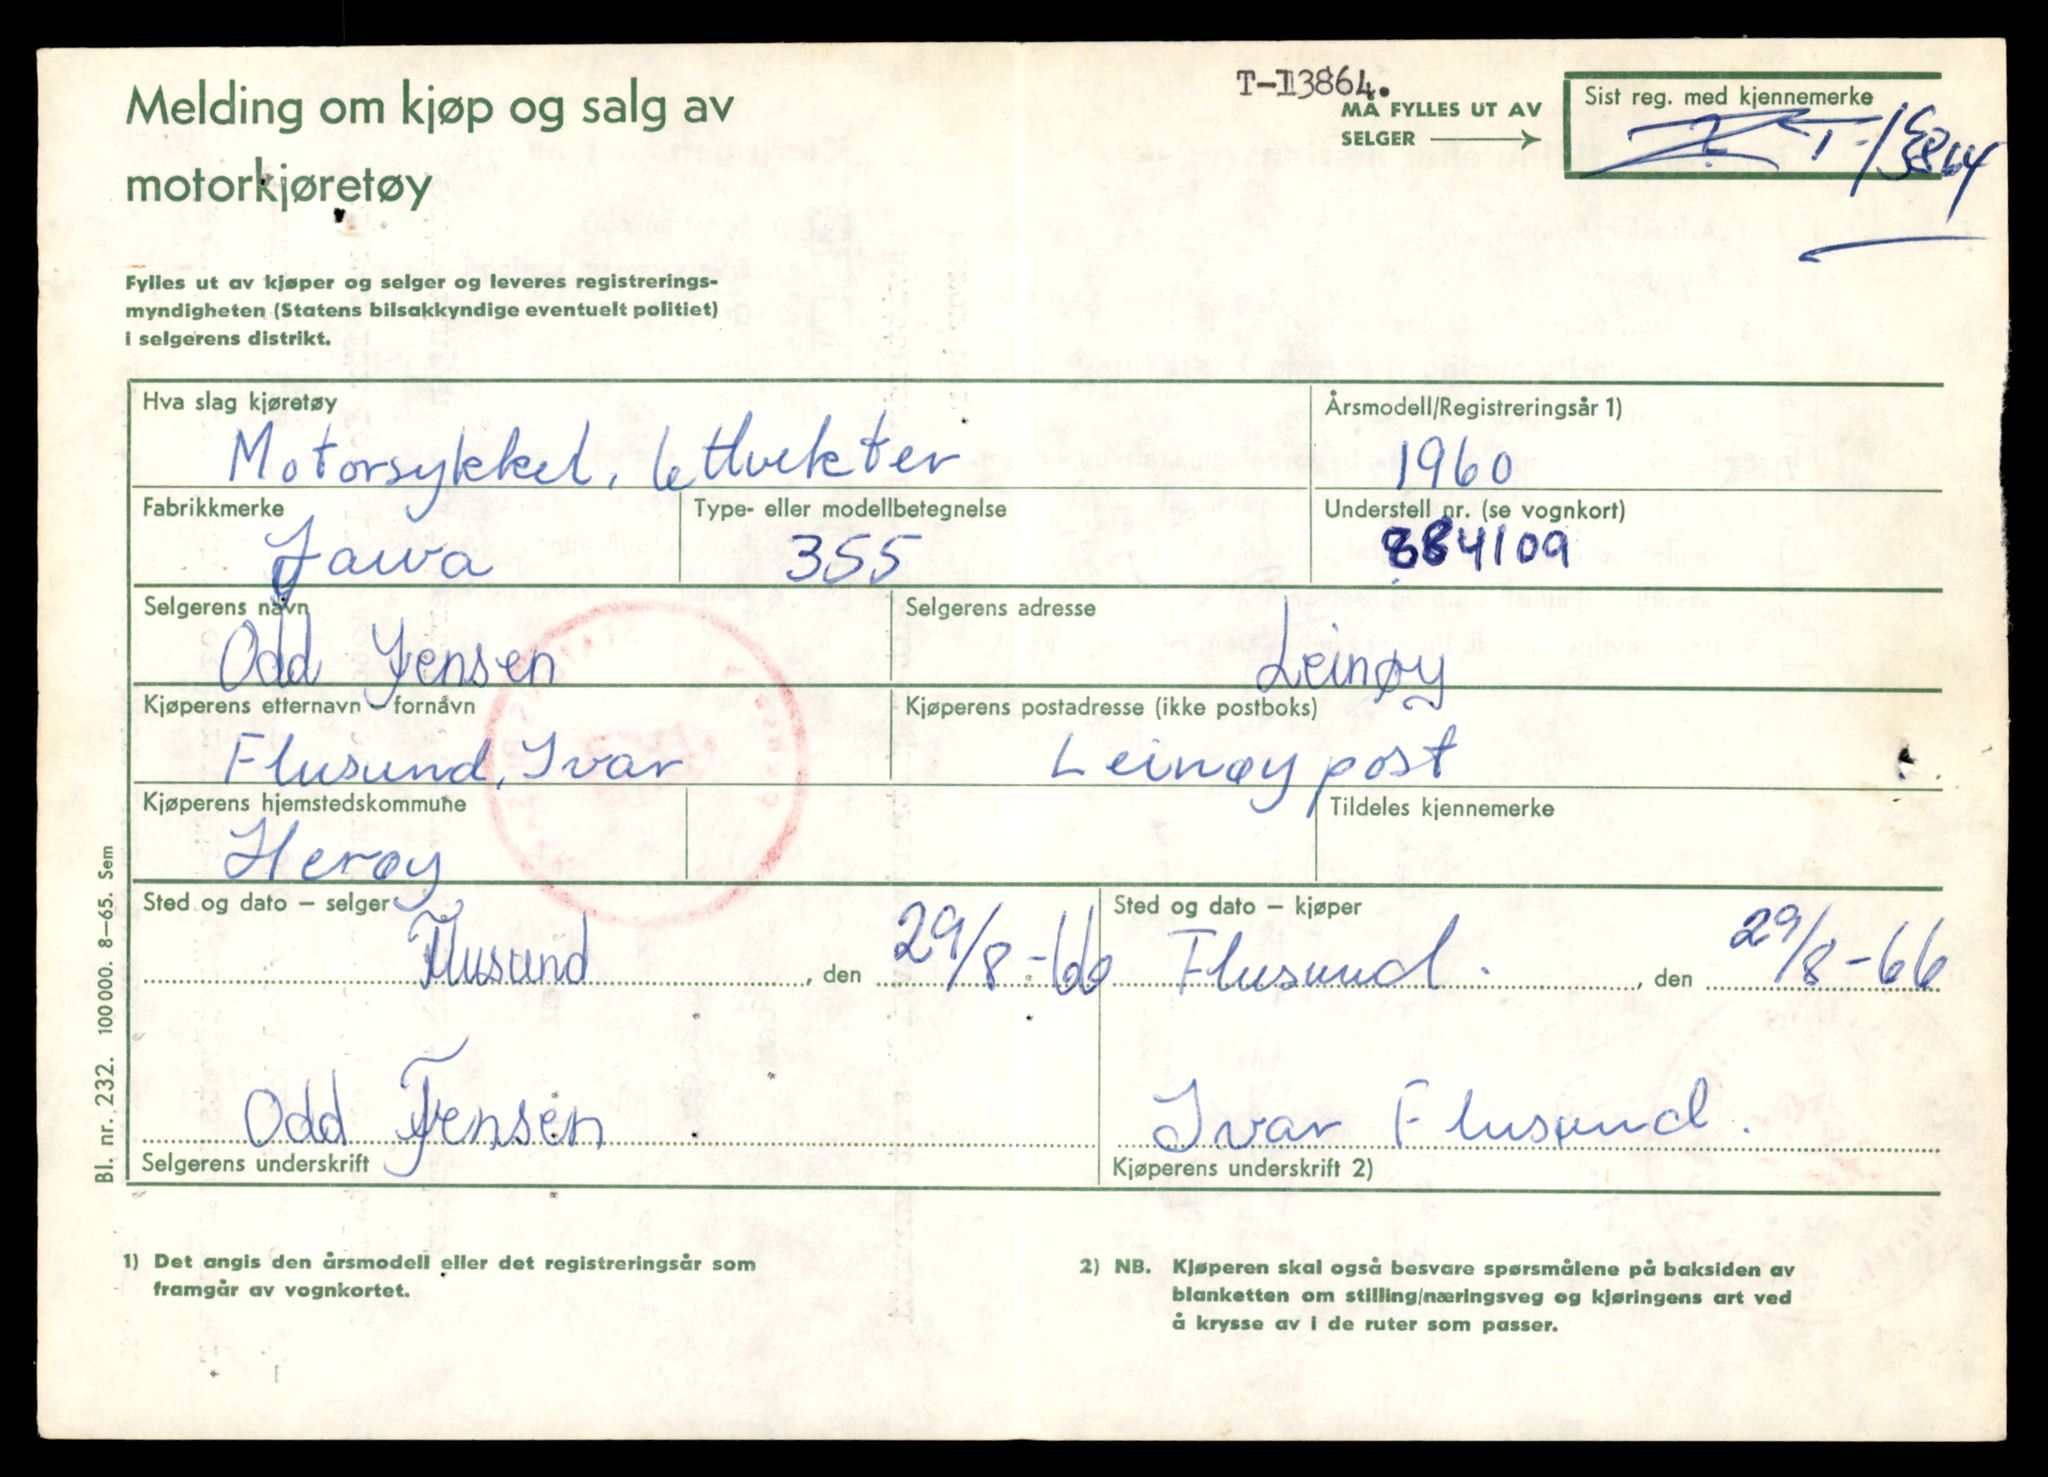 T-13864.
Melding om kjøp og salg av
motorkjøretøy
MÅ FYLLES UT AV
SELGER
Sist reg. med kjennemerke
T-13864
Fylles ut av kjøper og selger og leveres registrerings-
myndigheten (Statens bilsakkyndige eventuelt politiet)
i selgerens distrikt.
Hva slag kjøretøy
Motorsykkel, lettvekter
Årsmodell/Registreringsår 1)
1960
Fabrikkmerke
Jawa
Type- eller modellbetegnelse
355
Understell nr. (se vognkort)
884109
Selgerens navn
Odd Jensen
Selgerens adresse
Leinøy
Kjøperens etternavn – fornavn
Flusund, Ivar
Kjøperens postadresse (ikke postboks)
Leinøy post
Kjøperens hjemstedskommune
Herøy
Tildeles kjennemerke
Sted og dato – selger
Flusund, den 29/8-66
Sted og dato – kjøper
Flusund., den 29/8-66
Odd Jensen
Selgerens underskrift
Ivar Flusund.
Kjøperens underskrift 2)
Bl. nr. 232. 100 000. 8–65. Sem
1) Det angis den årsmodell eller det registreringsår som
framgår av vognkortet.
2) NB. Kjøperen skal også besvare spørsmålene på baksiden av
blanketten om stilling/næringsveg og kjøringens art ved
å krysse av i de ruter som passer.